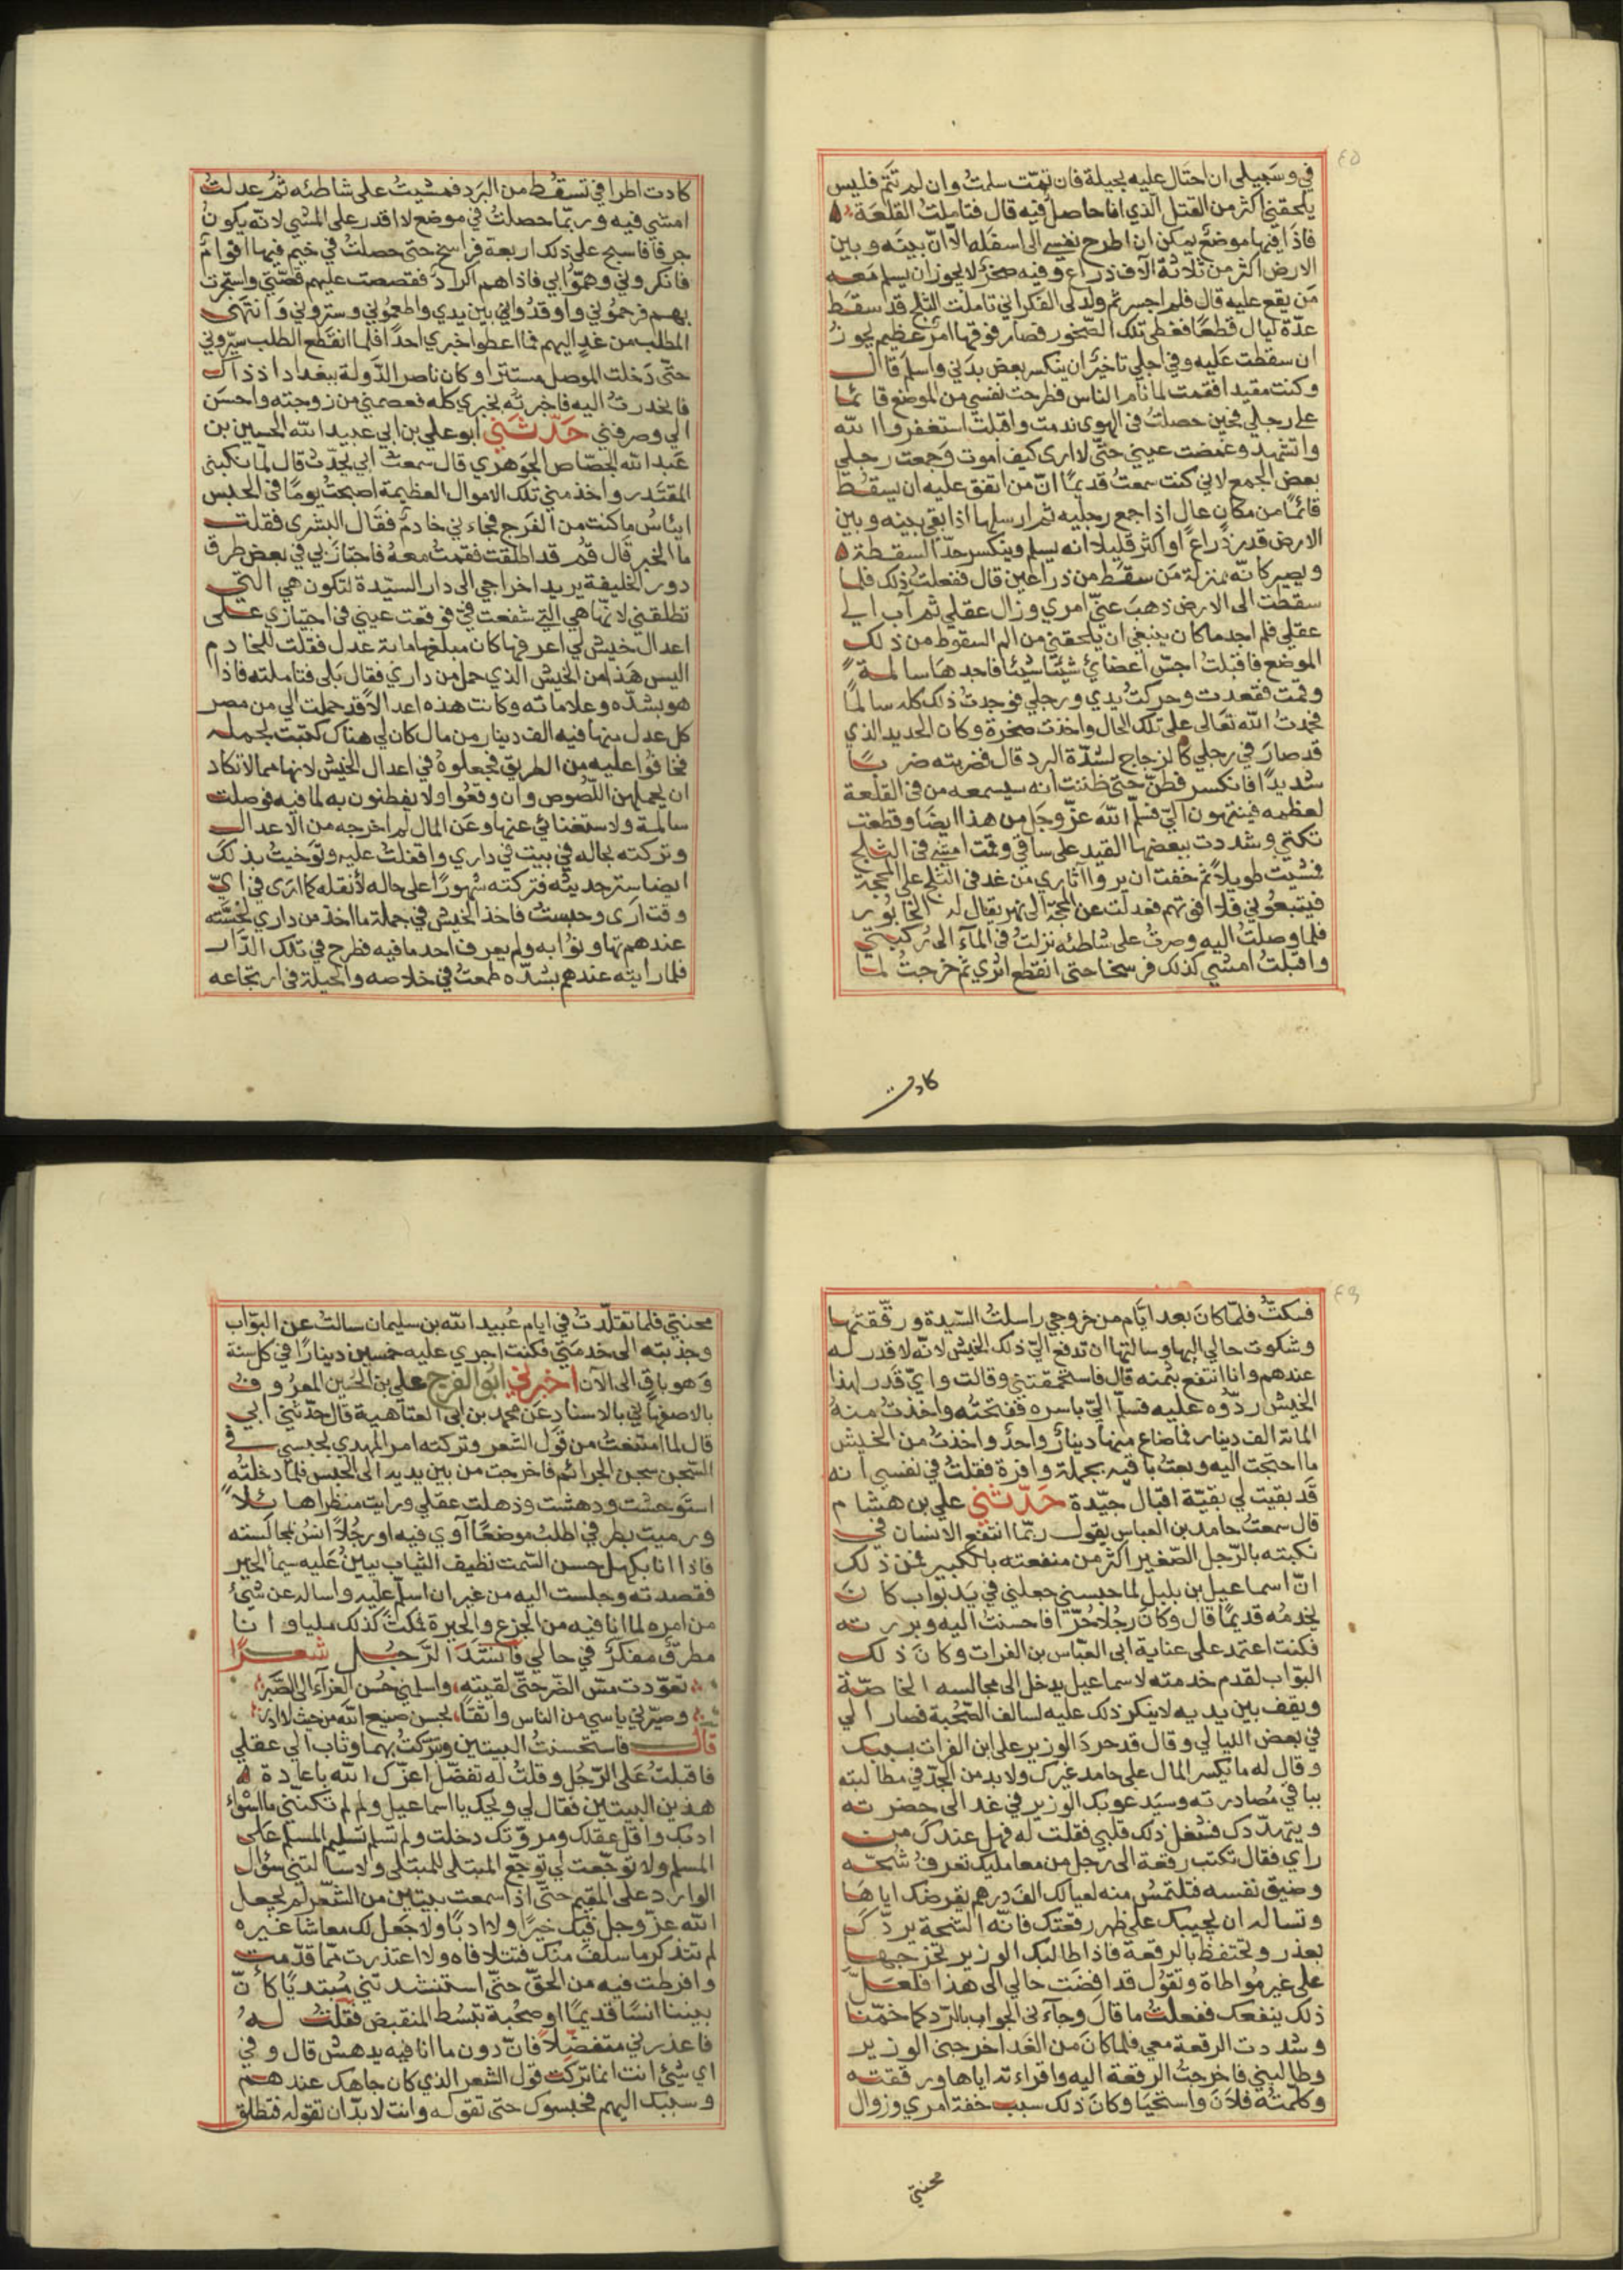 ٤٥
في وسبيلي ان احتال عليه بحيلة فان تمّت سلمتُ وان لم تتم فليس
يلحقني اكثر من القتل الذي انا حاصل فيه قال فتاملتُ القلعة
فاذا فيها موضع يمكن ان اطرح نفسي الى اسفله الّا انّ بينه وبين
الارض اكثر من ثلاثة آلاف ذراع وفيه صخر لا يجوز ان يسلم معه
من يقع عليه قال فلم اجسر ثم ولد لي الفكر اني تاملت الثلج قد سقط
عدّة ليال قطعًا فغطى تلك الصّخور فصار فوقها امر عظيم يجوز
ان سقطت عليه وفي اجلي تاخير ان ينكسر بعض بدني واسلم قال
وكنت مقيدا فقمت لما نام الناس فطرحت نفسي من الموضع قائما
على رجلي فحين حصلتُ في الهوى ندمت واقبلت استغفر الله
واتشهد وغمضت عيني حتّى لا ارى كيف اموت وجمعت رجلي
بعض الجمع لاني كنت سمعتُ قديمًا انّ من اتفق عليه ان يسقط
قائمًا من مكان عال اذا جمع رجليه ثم ارسلها اذا بقي بينه وبين
الارض قدر ذراع او اكثر قليلا انه يسلم وينكسر حدّ السقطة
ويصير كانّه بمنزلة من سقط من ذراعين قال ففعلت ذلك فلما
سقطت الى الارض ذهب عنّي امري وزال عقلي ثم آب الي
عقلي فلم اجد ما كان ينبغي ان يلحقني من الم السقوط من ذلك
الموضع فاقبلت اجسّ اعضائي شيئًا شيئا فاجدها سالمة
وقمت فقعدت وحركت يدي ورجلي فوجدتُ ذلك كله سالمًا
فحمدت الله تعالى على تلك الحال واخذت صخرة وكان الحديد الذي
قد صار في رجلي كالزجاج لشدّة البرد قال فضربته ضربًا
شديدًا فانكسر فطنّ حتى ظننت انه سيسمعه من في القلعة
لعظمه فينتبهون اليّ فسلّم الله عزّ وجل من هذا ايضا وقطعت
تكتي وشددت ببعضها القيد على ساقي وقمت امشي في الثلج
فمشيت طويلًا ثم خفت ان يروا آثاري من غد في الثلج على المحجة
فيتبعوني فلا افوتهم فعدلت عن المحجة الى نهر يقال له الخابور
فلما وصلتُ اليه وصرتُ على شاطئه نزلتُ في المآء الى ركبتي
واقبلت امشي كذلك فرسخا حتى انقطع اثري ثم خرجتُ لما
كادت
كادت اطرافي تسقط من البرد فمشيتُ على شاطئه ثم عدلتُ
امشي فيه وربّما حصلتُ في موضع لا اقدر على المشي لانّه يكون
جرفا فاسبح على ذلك اربعة فراسخ حتى حصلتُ في خيم فيها اقوام
فانكروني وهمّوا بي فاذا هم اكراد فقصصت عليهم قصّتي واستجرت
بهم فرحموني واوقدوا لي بين يدي واطعموني وستروني وانتهى
المطلب من غد اليهم فما اعطوا خبري احدًا فلما انقطع الطلب سيّروني
حتّى دخلت الموصل مستترا وكان ناصر الدّولة ببغداد اذ ذاك
فانحدرت اليه فاخبرته بخبري كله فعصمني من زوجته واحسن
الي وصرفني حَدّثَني ابو علي بن ابي عبيد الله الحسين بن
عبد الله الجصّاص الجوهري قال سمعتُ ابي يحدّث قال لما نكبني
المقتدر واخذ مني تلك الاموال العظيمة اصبحتُ يومًا في الحبس
ايئاس ما كنت من الفرج فجاءني خادم فقال البشرى فقلت
ما الخبر قال قم قد اطلقت فقمت معه فاجتاز بي في بعض طرق
دور الخليفة يريد اخراجي الى دار السيّدة لتكون هي التي
تطلقني لانّها هي التي شفعت فيّ فوقعت عيني في اجتيازي على
اعدال خيش لي اعرفها كان مبلغها مائة عدل فقلت للخادم
اليس هذا من الخيش الذي حمل من داري فقال بلى فتاملته فاذا
هو بشدّه وعلاماته وكانت هذه اعدالًا قد حملت الي من مصر
كل عدل منها فيه الف دينار من مال كان لي هناك كتبت بحمله
فخافوا عليه من الطريق فجعلوه في اعدال الخيش لانها مما لا تكاد
ان يحملهن اللّصوص وان وقعوا ولا يفطنون به لما فيه فوصلت
سالمة ولاستغنائي عنها وعن المال لم اخرجه من الاعدال
وتركته بحاله في بيت في داري واقفلت عليه وتوخيت بذلك
ايضا ستر حديثه فتركته شهورًا على حاله لأنقله كما ارى في ايّ
وقت ارى وحبست فاخذ الخيش في جملة ما اخذ من داري لخسته
عندهم تهاونوا به ولم يعرف احد ما فيه فطرح في تلك الدار
فلما رايته عندهم بشدّه طمعتُ في خلاصه والحيلة في ارتجاعه
٤٦
فسكتّ فلمّا كان بعد ايّام من خروجي راسلتُ السّيدة ورقّقتها
وشكوت حالي اليها وسالتها ان تدفع اليّ ذلك الخيش لانّه لا قدر له
عندهم وانا انتفع بثمنه قال فاستحمقتني وقالت واي قدر لهذا
الخيش ردّوه عليه فسلّم اليّ باسره ففتحته واخذت منه
المائة الف دينار فما ضاع منها دينار واحد واخذت من الخيش
ما احتجت اليه وبعتُ باقيه بجملة وافرة فقلتُ في نفسي انه
قد بقيت لي بقيّة اقبال جيّدة حَدّثَني علي بن هشام
قال سمعتُ حامد بن العباس يقول ربّما انتفع الانسان في
نكبته بالرّجل الصّغير اكثر من منفعته بالكبير فمن ذلك
انّ اسماعيل بن بلبل لما حبسني جعلني في يد بواب كان
يخدمه قديمًا قال وكان رجُلًا حُرّا فاحسنت اليه وبررته
فكنت اعتمد على عناية ابي العبّاس بن الفرات وكان ذلك
البوّاب لقدم خدمته لاسماعيل يدخل الى مجالسه الخاصّة
ويقف بين يديه لا ينكر ذلك عليه لسالف الصّحبة فصار الي
في بعض الليالي وقال قد حرد الوزير على ابن الفرات بسببك
وقال له ما يكسر المال على حامد غيرك ولا بد من الجدّ في مطالبته
بباقي مُصادرته وسيدعو بك الوزير في غد الى حضرته
ويتهدّدك فشغل ذلك قلبي فقلت له فهل عندك من
راي فقال تكتب رقعة الى رجل من معامليك تعرف شُحّه
وضيق نفسه فتلتمس منه لعيالك الف درهم يقرضك اياها
وتساله ان يجيبك على ظهر رقعتك فانّه الشحة يردّك
بعذر وتحتفظ بالرقعة فاذا طالبك الوزير تخرجها
على غير مُواطاة وتقول قد افضت حالي الى هذا فلعلّ
ذلك ينفعك ففعلت ما قال وجآءني الجواب بالرّد كما خمّنا
وشددت الرقعة معي فلما كان من الغد اخرجني الوزير
وطالبني فاخرجتُ الرقعة اليه واقراءته اياها ورققته
وكلّمته فلان واستحيا وكان ذلك سبب خفة امري وزوال
محنتي
محنتي فلما تقلّدتُ في ايام عُبيد الله بن سليمان سالت عن البوّاب
وجذبته الى خدمتي فكنت اجري عليه خمسين دينارًا في كل سنة
وهو باق الى الآن اخبرني ابو الفرج علي بن الحُسين المعروف
بالاصفهاني بالاسناد عن محمد بن ابي العتاهية قال حدّثني ابي
قال لما امتنعتُ من قول الشعر وتركته امر المهدي بحبسي في
السّجن سجن الجرائم فاخرجت من بين يديه الى الحبس فلما دخلته
استوحشت ودهشت وذهلت عقلي ورايت منظرا هائلًا
ورميت بطرفي اطلب موضعًا آوي فيه او رجُلًا انس بمجالسته
فاذا انا بكهل حسن السّمت نظيف الثياب يبين عليه سيما الخير
فقصدته وجلست اليه من غير ان اسلّم عليه واساله عن شيئ
من امره لما انا فيه من الجزع والحيرة فمكثت كذلك مليا وانا
مطرق مفكر في حالي فانشد الرّجل شعرًا
تعوّدت مسّ الضر حتى لقيته، واسلمني حُسن العزآء الى الصّبر
وصيّرني ياسي من الناس واثقًا، لحسن صنيع الله من حيث لا ادري
قال فاستحسنتُ البيتين وتبرّكتُ بهما وثاب الي عقلي
فاقبلتُ على الرّجُل وقلتُ له تفضّل اعزّك الله باعادة
هذين البيتين فقال لي ويحك يا اسماعيل ولم تكنني ما اسواء
ادبك واقل عقلك ومروّتك دخلت ولم تسلم تسليم المسلم على
المسلم ولا توجّعت لي توجّع المبتلى للمبتلى ولا سالتني سؤال
الوارد على المقيم حتّى اذا سمعت بيتين من الشّعر لم يجعل
الله عزّ وجل فيك خيرًا ولا ادبًا ولا جعل لك معاشا غيره
لم تتذكر ما سلف منك فتتلافاه ولا اعتذرت ممّا قدّمت
وافرطت فيه من الحقّ حتّى استنشدتني مُبتديًا كانّ
بيننا انسًا قديمًا او صُحبة تبسُط المنقبض فقلتُ له
فاعذرني متفضلًا فانّ دون ما انا فيه يدهش قال وفي
اي شيئ انت انما تركت قول الشعر الذي كان جاهك عندهم
وسببك اليهم فحبسوك حتى تقوله وانت لا بدّ ان تقوله فتطلق